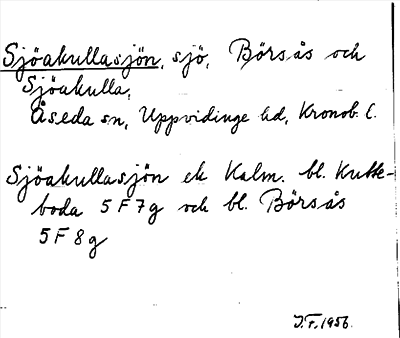 Sjöakullasjön, sjö, Börsås och
Sjöakulla,
Åseda sn, Uppvidinge hd, Kronob. l.
Sjöakullasjön ek Kalm. bl. Kutte-
boda 5 F 7 g och bl. Börsås
5 F 8 g
J.F. 1956.